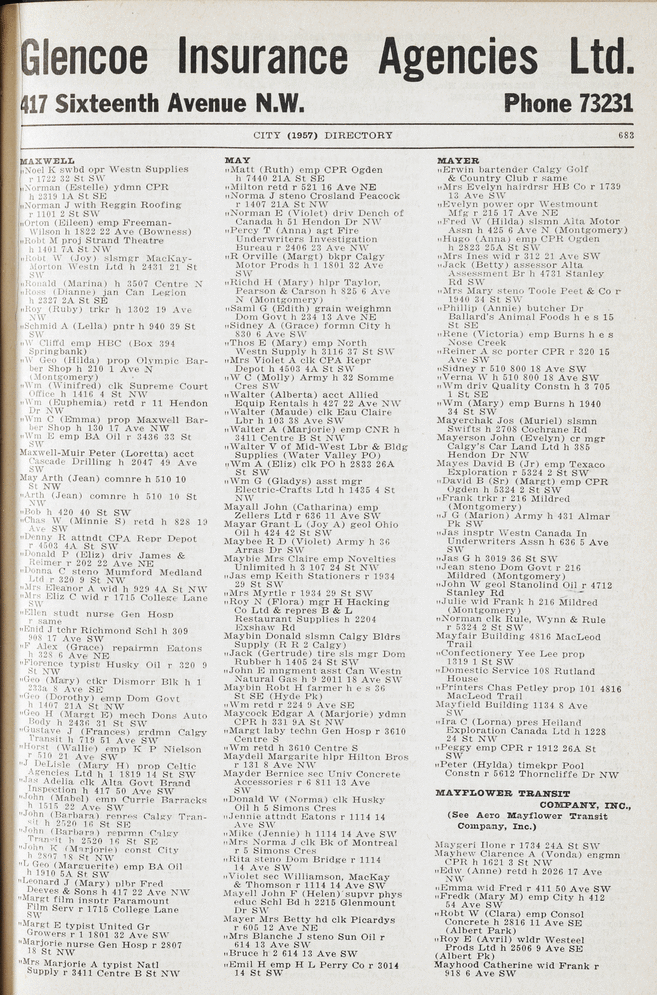 Glencoe Insurance Agencies Ltd.
417 Sixteenth Avenue N.W. Phone 73231
CITY (1957) DIRECTORY 683
MAXWELL
"Noel K swbd opr Westn Supplies
r 1722 32 St SW
"Norman (Estelle) ydmn CPR
h 2319 1A St SE
"Norman J with Reggin Roofing
r 1101 2 St SW
"Orton (Eileen) emp Freeman-
Wilson h 1822 22 Ave (Bowness)
"Robt M proj Strand Theatre
h 1401 7A St NW
"Robt W (Joy) slsmgr MacKay-
Morton Westn Ltd h 2431 21 St
SW
"Ronald (Marina) h 3507 Centre N
"Ross (Dianne) jan Can Legion
h 2327 2A St SE
"Roy (Ruby) trkr h 1302 19 Ave
NW
"Schmid A (Lella) pntr h 940 39 St
SW
"W Cliffd emp HBC (Box 394
Springbank)
"W Geo (Hilda) prop Olympic Bar-
ber Shop h 210 1 Ave N
(Montgomery)
"Wm (Winifred) clk Supreme Court
Office h 1416 4 St NW
"Wm (Euphemia) retd r 11 Hendon
Dr NW
"Wm C (Emma) prop Maxwell Bar-
ber Shop h 130 17 Ave NW
"Wm E emp BA Oil r 3436 33 St
SW
Maxwell-Muir Peter (Loretta) acct
Cascade Drilling h 2047 49 Ave
SW
May Arth (Jean) comnre h 510 10
St NW
"Arth (Jean) comnre h 510 10 St
NW
"Bob h 420 40 St SW
"Chas W (Minnie S) retd h 828 19
Ave SW
"Denny R attndt CPA Repr Depot
r 4503 4A St SW
"Donald P (Eliz) driv James &
Reimer r 202 22 Ave NE
"Donna C steno Mumford Medland
Ltd r 320 9 St NW
"Mrs Eleanor A wid h 929 4A St NW
"Mrs Eliz C wid r 1715 College Lane
SW
"Ellen studt nurse Gen Hosp
r same
"Enid J tchr Richmond Schl h 309
908 17 Ave SW
"F Alex (Grace) repairmn Eatons
h 328 6 Ave NE
"Florence typist Husky Oil r 320 9
St NW
"Geo (Mary) ctkr Dismorr Blk h 1
233a 8 Ave SE
"Geo (Dorothy) emp Dom Govt
h 1407 21A St NW
"Geo H (Margt E) mech Dons Auto
Body h 2436 31 St SW
"Gustave J (Frances) grdmn Calgy
Transit h 719 51 Ave SW
"Horst (Wallie) emp K P Nielson
r 510 21 Ave SW
"J DeLisle (Mary H) prop Celtic
Agencies Ltd h 1 1819 14 St SW
"Jas Adelia clk Alta Govt Brand
Inspection h 417 50 Ave SW
"John (Mabel) emn Currie Barracks
h 1515 22 Ave SW
"John (Barbara) repres Calgy Tran-
sit h 2520 16 St SE
"John (Barbara) reprmn Calgy
Transit h 2520 16 St SE
"John K (Marjorie) const City
h 2807 18 St NW
"L Geo (Marguerite) emp BA Oil
h 1910 5A St SW
"Leonard J (Mary) plbr Fred
Deeves & Sons h 417 22 Ave NW
"Margt film insptr Paramount
Film Serv r 1715 College Lane
SW
"Margt E typist United Gr
Growers r 1 1801 32 Ave SW
"Marjorie nurse Gen Hosp r 2807
18 St NW
"Mrs Marjorie A typist Natl
Supply r 3411 Centre B St NW
MAY
"Matt (Ruth) emp CPR Ogden
h 7440 21A St SE
"Milton retd r 521 16 Ave NE
"Norma J steno Crosland Peacock
r 1407 21A St NW
"Norman E (Violet) driv Dench of
Canada h 51 Hendon Dr NW
"Percy T (Anna) agt Fire
Underwriters Investigation
Bureau r 2406 23 Ave NW
"R Orville (Margt) bkpr Calgy
Motor Prods h 1 1801 32 Ave
SW
"Richd H (Mary) hlpr Taylor,
Pearson & Carson h 825 6 Ave
N (Montgomery)
"Saml G (Edith) grain weighmn
Dom Govt h 234 13 Ave NE
"Sidney A (Grace) formn City h
830 6 Ave SW
"Thos E (Mary) emp North
Westn Supply h 3116 37 St SW
"Mrs Violet A clk CPA Repr
Depot h 4503 4A St SW
"W C (Molly) Army h 32 Somme
Cres SW
"Walter (Alberta) acct Allied
Equip Rentals h 427 22 Ave NW
"Walter (Maude) clk Eau Claire
Lbr h 103 38 Ave SW
"Walter A (Marjorie) emp CNR h
3411 Centre B St NW
"Walter V of Mid-West Lbr & Bldg
Supplies (Water Valley PO)
"Wm A (Eliz) clk PO h 2833 26A
St SW
"Wm G (Gladys) asst mgr
Electric-Crafts Ltd h 1435 4 St
NW
Mayall John (Catharina) emp
Zellers Ltd r 636 11 Ave SW
Mayar Grant L (Joy A) geol Ohio
Oil h 424 42 St SW
Maybee R D (Violet) Army h 36
Arras Dr SW
Maybie Mrs Claire emp Novelties
Unlimited h 3 107 24 St NW
"Jas emp Keith Stationers r 1934
29 St SW
"Mrs Myrtle r 1934 29 St SW
"Roy N (Flora) mgr H Hacking
Co Ltd & repres B & L
Restaurant Supplies h 2204
Exshaw Rd
Maybin Donald slsmn Calgy Bldrs
Supply (R R 2 Calgy)
"Jack (Gertrude) tire sls mgr Dom
Rubber h 1405 24 St SW
"John E mngment asst Can Westn
Natural Gas h 9 2011 18 Ave SW
Maybin Robt H farmer h e s 36
St SE (Hyde Pk)
"Wm retd r 224 9 Ave SE
Maycock Edgar A (Marjorie) ydmn
CPR h 331 9A St NW
"Margt laby techn Gen Hosp r 3610
Centre S
"Wm retd h 3610 Centre S
Maydell Margarite hlpr Hilton Bros
r 131 8 Ave NW
Mayder Bernice sec Univ Concrete
Accessories r 6 811 13 Ave
SW
"Donald W (Norma) clk Husky
Oil h 5 Simons Cres
"Jennie attndt Eatons r 1114 14
Ave SW
"Mike (Jennie) h 1114 14 Ave SW
"Mrs Norma J clk Bk of Montreal
r 5 Simons Cres
"Rita steno Dom Bridge r 1114
14 Ave SW
"Violet sec Williamson, MacKay
& Thomson r 1114 14 Ave SW
Mayell John F (Helen) supvr phys
educ Schl Bd h 2215 Glenmount
Dr SW
Mayer Mrs Betty hd clk Picardys
r 605 12 Ave NE
"Mrs Blanche J steno Sun Oil r
614 13 Ave SW
"Bruce h 2 614 13 Ave SW
"Emil H emp H L Perry Co r 3014
14 St SW
MAYER
"Erwin bartender Calgy Golf
& Country Club r same
"Mrs Evelyn hairdrsr HB Co r 1739
13 Ave SW
"Evelyn power opr Westmount
Mfg r 215 17 Ave NE
"Fred W (Hilda) slsmn Alta Motor
Assn h 425 6 Ave N (Montgomery)
"Hugo (Anna) emp CPR Ogden
h 2823 25A St SW
"Mrs Ines wid r 312 21 Ave SW
"Jack (Betty) assessor Alta
Assessment Br h 4731 Stanley
Rd SW
"Mrs Mary steno Toole Peet & Co r
1940 34 St SW
"Phillip (Annie) butcher Dr
Ballard's Animal Foods h e s 15
St SE
"Rene (Victoria) emp Burns h e s
Nose Creek
"Reiner A sc porter CPR r 320 15
Ave SW
"Sidney r 510 800 18 Ave SW
"Verna W h 510 800 18 Ave SW
"Wm driv Quality Constn h 3 705
1 St SE
"Wm (Mary) emp Burns h 1940
34 St SW
Mayerchak Jos (Muriel) slsmn
Swifts h 2708 Cochrane Rd
Mayerson John (Evelyn) cr mgr
Calgy's Car Land Ltd h 385
Hendon Dr NW
Mayes David B (Jr) emp Texaco
Exploration r 5324 2 St SW
"David B (Sr) (Margt) emp CPR
Ogden h 5324 2 St SW
"Frank trkr r 216 Mildred
(Montgomery)
"J G (Marion) Army h 431 Almar
Pk SW
"Jas inspr Westn Canada In
Underwriters Assn h 636 5 Ave
SW
"Jas G h 3019 36 St SW
"Jean steno Dom Govt r 216
Mildred (Montgomery)
"John W geol Stanolind Oil r 4712
Stanley Rd
"Julie wid Frank h 216 Mildred
(Montgomery)
"Norman clk Rule, Wynn & Rule
r 5324 2 St SW
Mayfair Building 4816 MacLeod
Trail
"Confectionery Yee Lee prop
1319 1 St SW
"Domestic Service 108 Rutland
House
"Printers Chas Petley prop 101 4816
MacLeod Trail
Mayfield Building 1134 8 Ave
SW
"Ira C (Lorna) pres Heiland
Exploration Canada Ltd h 1228
24 St NW
"Peggy emp CPR r 1912 26A St
SW
"Peter (Hylda) timekpr Pool
Constn r 5612 Thorncliffe Dr NW
MAYFLOWER TRANSIT
COMPANY, INC.,
(See Aero Mayflower Transit
Company, Inc.)
Maygeri Ilone r 1734 24A St SW
Mayhew Clarence A (Vonda) engmn
CPR h 1621 3 St NW
"Edw (Anne) retd h 2026 17 Ave
NW
"Emma wid Fred r 411 50 Ave SW
"Fredk (Mary M) emp City h 412
54 Ave SW
"Robt W (Clara) emp Consol
Concrete h 2816 11 Ave SE
(Albert Park)
"Roy E (Avril) wldr Westeel
Prods Ltd h 2506 9 Ave SE
(Albert Pk)
Mayhood Catherine wid Frank r
918 6 Ave SW